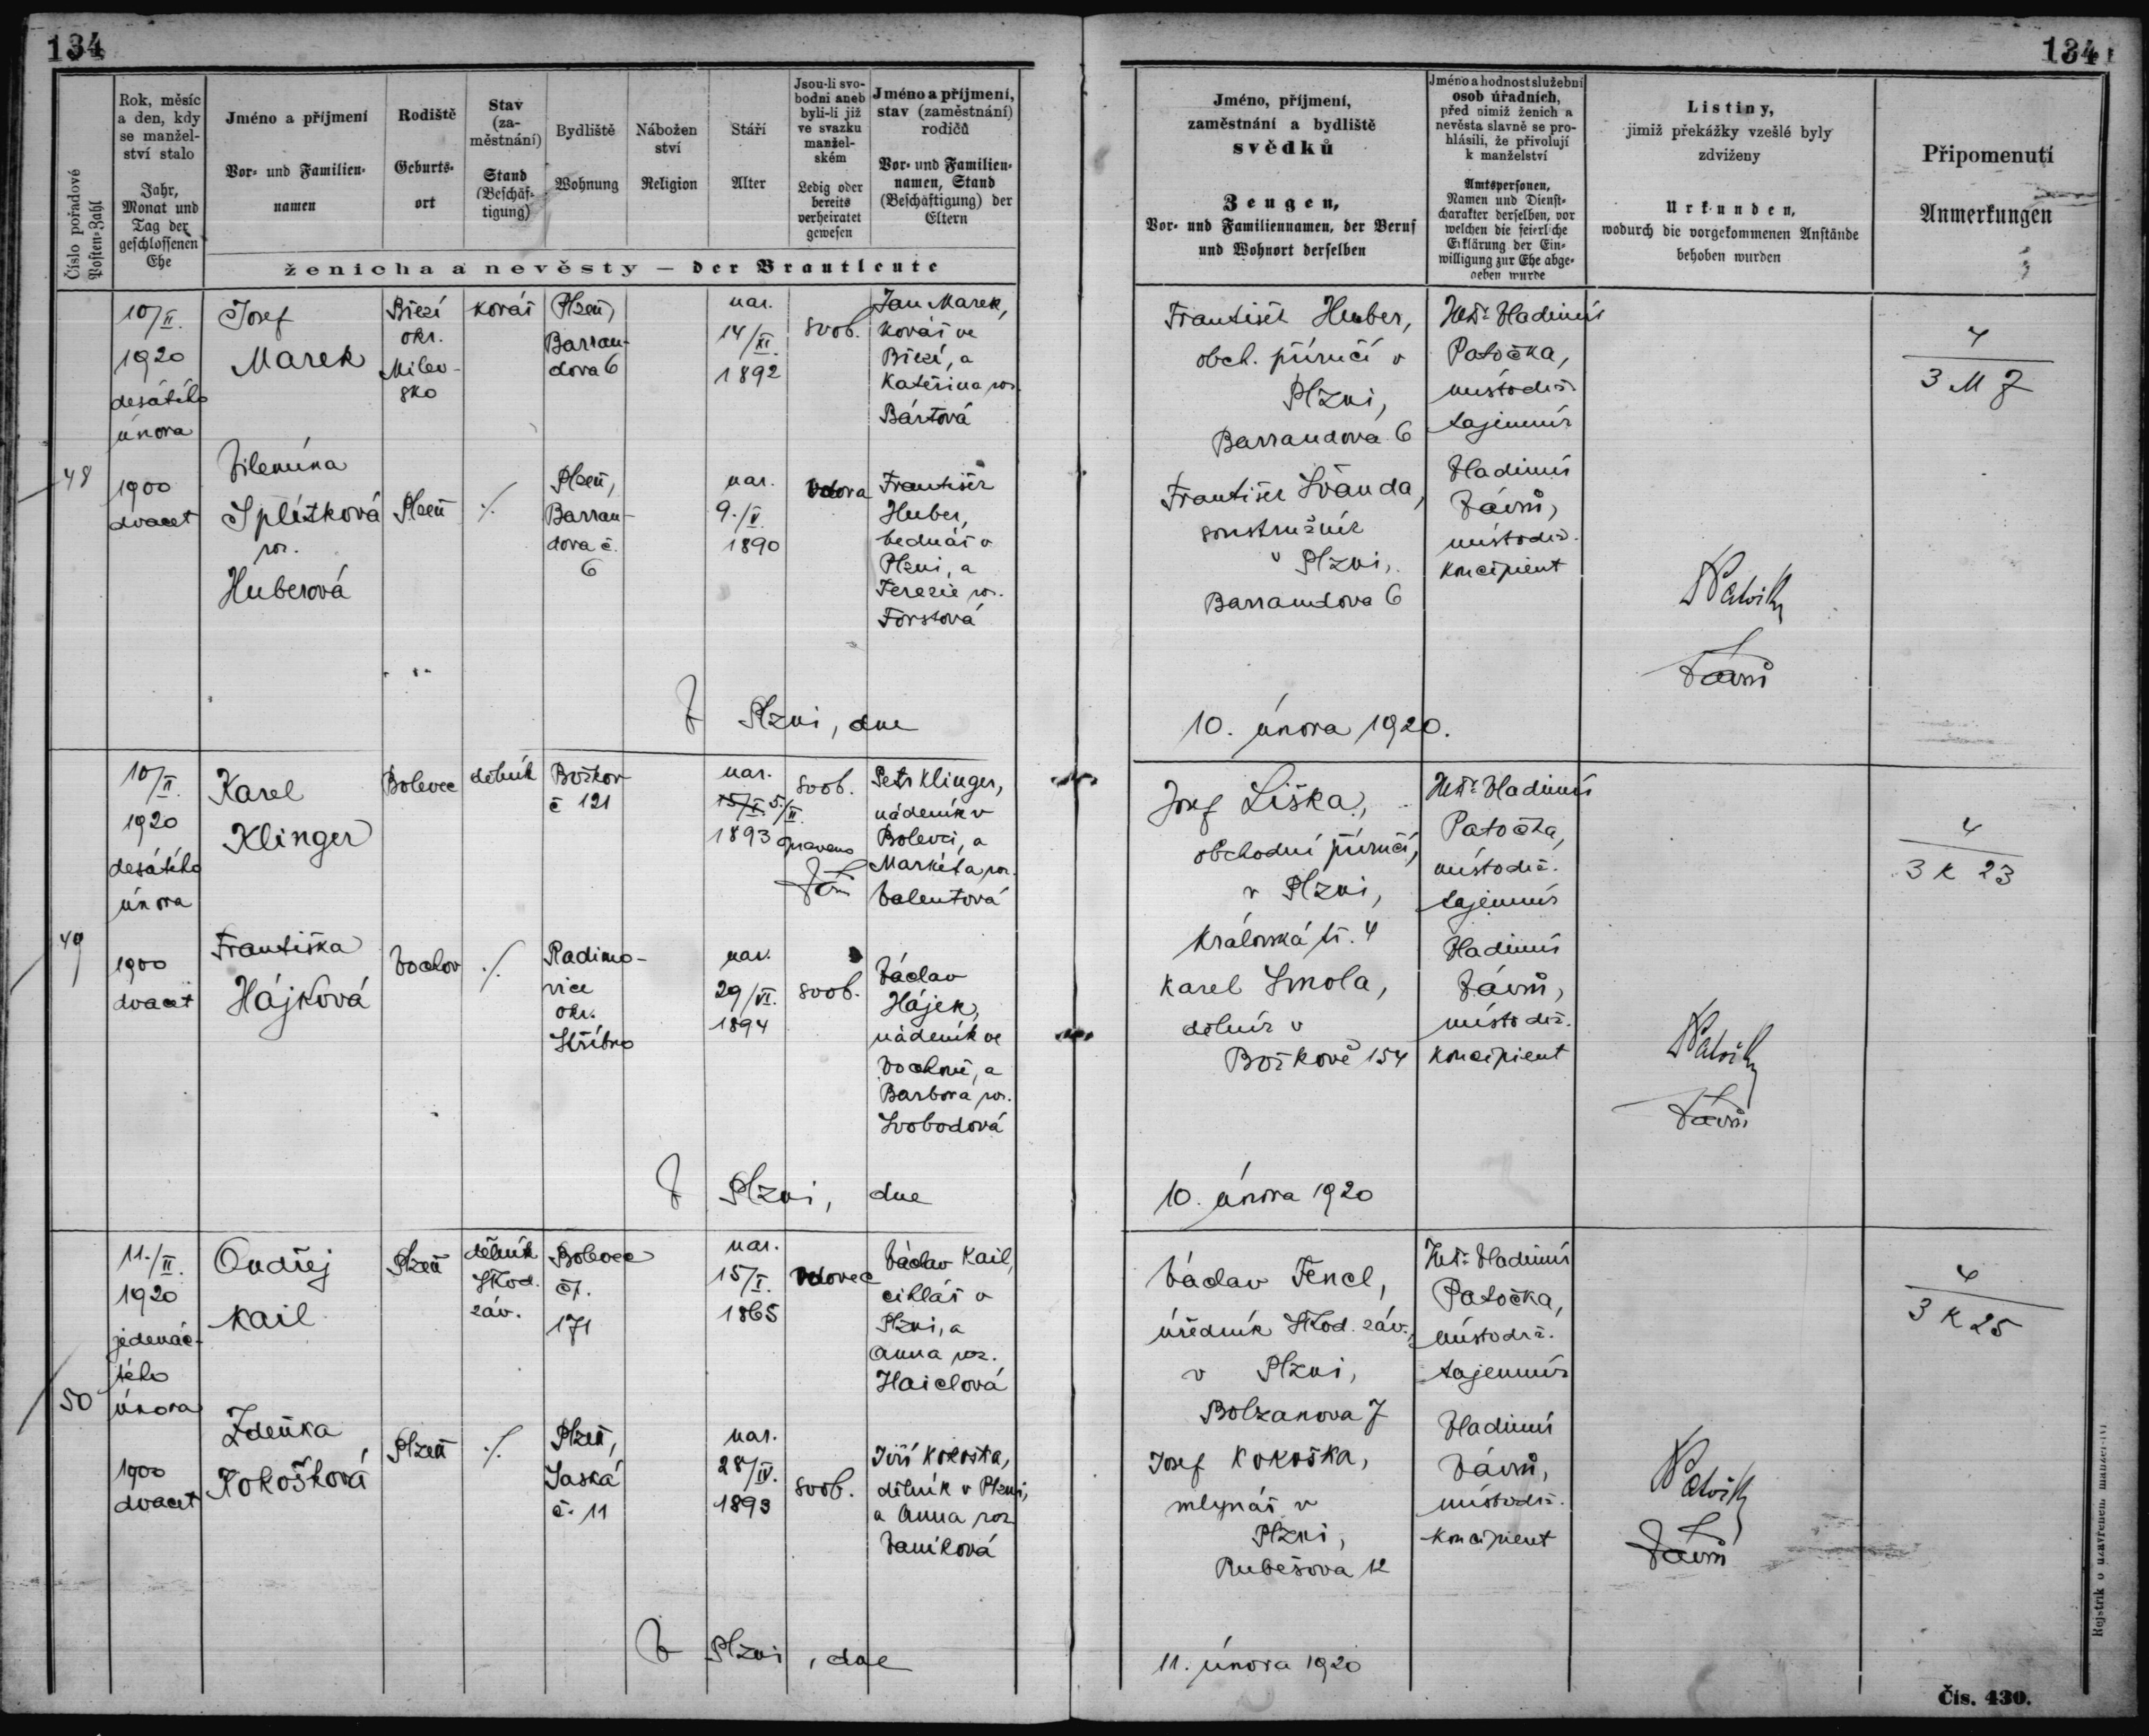 134
134
Číslo pořadové
Posten-Zahl
Rok, měsíc
a den, kdy
se manžel-
ství stalo
Jahr,
Monat und
Tag der
geschlossenen
Ehe
Jméno a příjmení
Vor- und Familien-
namen
Rodiště
Geburts-
ort
Stav
(za-
městnání)
Stand
(Beschäf-
tigung)
Bydliště
Wohnung
Nábožen
ství
Religion
Stáří
Alter
Jsou-li svo-
bodni aneb
byli-li již
ve svazku
manžel-
ském
Ledig oder
bereits
verheiratet
gewesen
Jméno a příjmení,
stav (zaměstnání)
rodičů
Vor- und Familien-
namen, Stand
(Beschäftigung) der
Eltern
ženicha a nevěsty — der Brautleute
Jméno, příjmení,
zaměstnání a bydliště
svědků
Zeugen,
Vor- und Familiennamen, der Beruf
und Wohnort derselben
Jméno a hodnost služební
osob úřadních,
před nimiž ženich a
nevěsta slavně se pro-
hlásili, že přivolují
k manželství
Amtspersonen,
Namen und Dienst-
charakter derselben, vor
welchen die feierliche
Erklärung der Ein-
willigung zur Ehe abge-
geben wurde
Listiny,
jimiž překážky vzešlé byly
zdviženy
Urkunden,
wodurch die vorgekommenen Anstände
behoben wurden
Připomenutí
Anmerkungen
48
10/II.
1920
desátého
února
1900
dvacet
Josef
Marek
Březí
okr.
Milev-
sko
kovář
Plzeň,
Barran-
dova 6
nar.
14/XI.
1892
svob.
Jan Marek,
kovář ve
Březí, a
Kateřina roz.
Bártová
Vilemína
Splítková
roz.
Huberová
Plzeň
./.
Plzeň,
Barran-
dova č.
6
nar.
9./V.
1890
vdova
František
Huber,
bednář v
Plzni, a
Terezie roz.
Forstová
František Huber,
obch. příručí v
Plzni,
Barrandova 6
František Švanda,
soustružník
v Plzni,
Barrandova 6
JUDr. Vladimír
Patočka,
místodrž.
tajemník
Vladimír
Vávrů,
místodrž.
koncipient
Vávrů
4
3 M 7
V Plzni, dne
10. února 1920.
49
10/II.
1920
desátého
února
1900
dvacet
Karel
Klinger
Bolevec
dělník
Božkov
č 121
nar.
15/I. 5./II.
1893 opraveno
svob.
Petr Klinger,
nádeník v
Bolevci, a
Markéta roz.
Valentová
Františka
Hájková
Vochov
./.
Radimo-
vice
okr.
Stříbro
nar.
29/VI.
1894
svob.
Václav
Hájek,
nádeník ve
Vochově, a
Barbora roz.
Svobodová
Josef Liška,
obchodní příručí,
v Plzni,
Královská tř. 4
Karel Smola,
dělník v
Božkově 154
JUDr. Vladimír
Patočka,
místodrž.
tajemník
Vladimír
Vávrů,
místodrž.
koncipient
Vávrů
4
3 K 23
V Plzni, dne
10. února 1920
50
11./II.
1920
jedenác-
tého
února
1900
dvacet
Ondřej
Kail
Plzeň
dělník
Škod.
záv.
Bolevec
čp.
171
nar.
15/I.
1865
vdovec
Václav Kail,
cihlář v
Plzni, a
Anna roz.
Haiclová
Zdeňka
Kokošková
Plzeň
./.
Plzeň,
Saská
č. 11
nar.
28/IV.
1893
svob.
Jiří Kokoška,
dělník v Plzni,
a Anna roz.
Vaníková
Václav Fencl,
úředník Škod. záv.,
v Plzni,
Bolzanova 7
Josef Kokoška,
mlynář v
Plzni,
Rubešova 12
JUDr. Vladimír
Patočka,
místodrž.
tajemník
Vladimír
Vávrů,
místodrž.
koncipient
Vávrů
4
3 K 25
V Plzni, dne
11. února 1920
Čís. 430.